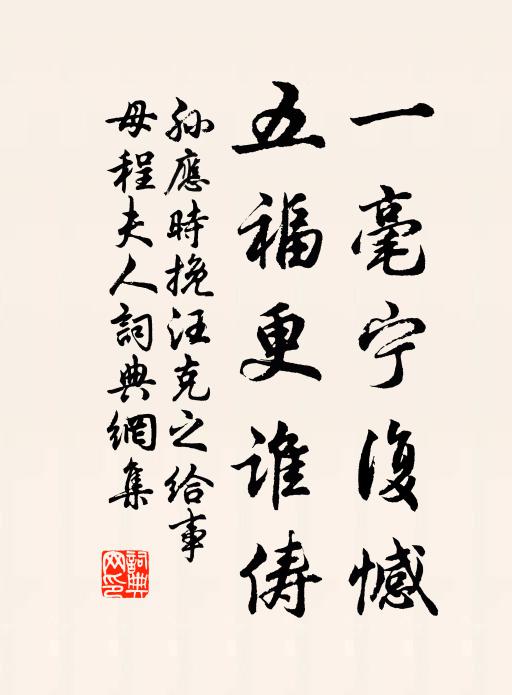 一毫宁復憾
五福更誰俦
孫應時挽汪克之給事
母程夫人詞典網集
詞典網印